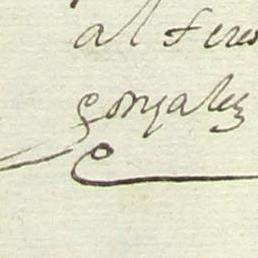 al feres
gonzalez